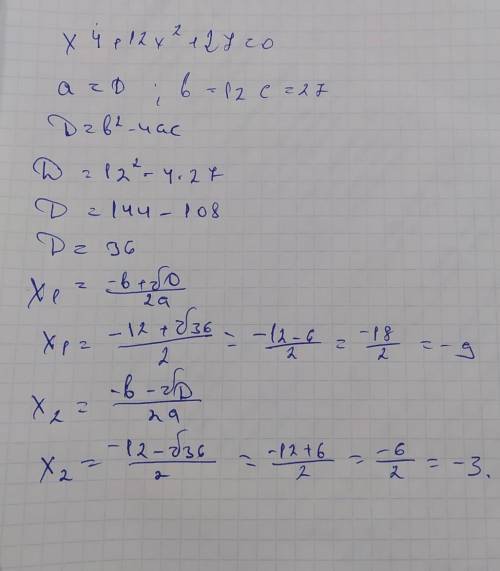 x 4 + 12x² + 27 = 0
a = D ; b = 12 c = 27
D = b² - 4ac
D = 12² - 4·27
D = 144 - 108
D = 36
x₁ = (-b + √D)/2a
x₁ = (-12 + √36)/2 = (-12 - 6)/2 = -18/2 = -9
x₂ = (-b - √D)/2a
x₂ = (-12 - √36)/2 = (-12 + 6)/2 = -6/2 = -3.